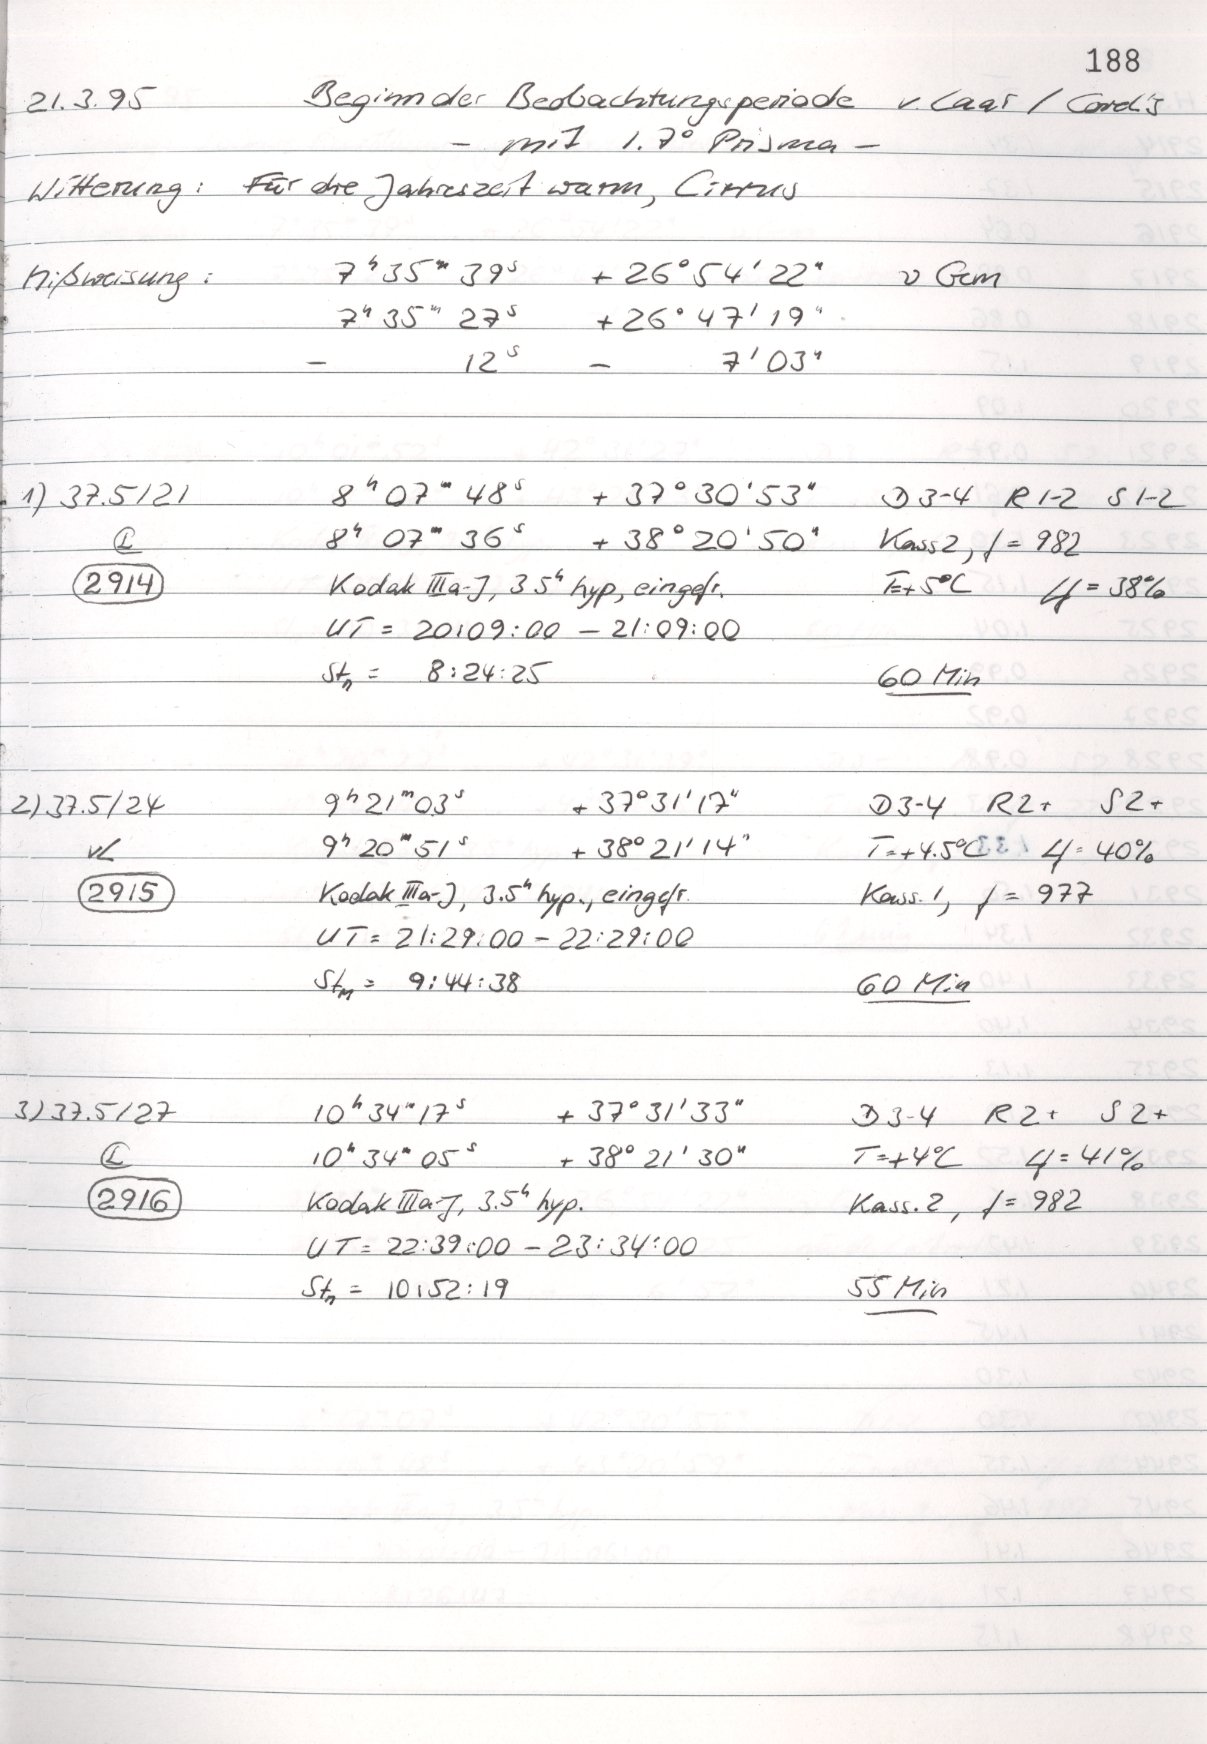 188
21.3.95 Beginn der Beobachtungsperiode v. Laar / Cordis
- mit 1.7° Prisma -
Witterung: Für die Jahreszeit warm, Cirrus
Mißweisung: 7ʰ35ᵐ39ˢ +26°54'22" υ Gem
7ʰ35ᵐ27ˢ +26°47'19"
- 12ˢ - 7'03"
1) 37.5/21 8ʰ07ᵐ48ˢ +37°30'53" D3-4 R1-2 S1-2
8ʰ07ᵐ36ˢ +38°20'50" Kass 2, f = 982
2914 Kodak IIIa-J, 3.5ʰ hyp, eingefr. T=+5°C = 38%
UT = 20:09:00 - 21:09:00
Stₘ = 8:24:25 60 Min
2) 37.5/24 9ʰ21ᵐ03ˢ +37°31'17" D3-4 R2+ S2+
vL 9ʰ20ᵐ51ˢ +38°21'14" T=+4.5°C = 40%
2915 Kodak IIIa-J, 3.5ʰ hyp., eingefr. Kass. 1, f = 977
UT = 21:29:00 - 22:29:00
Stₘ = 9:44:38 60 Min
3) 37.5/27 10ʰ34ᵐ17ˢ +37°31'33" D3-4 R2+ S2+
10ʰ34ᵐ05ˢ +38°21'30" T=+4°C = 41%
2916 Kodak IIIa-J, 3.5ʰ hyp. Kass. 2, f = 982
UT = 22:39:00 - 23:34:00
Stₘ = 10:52:19 55 Min